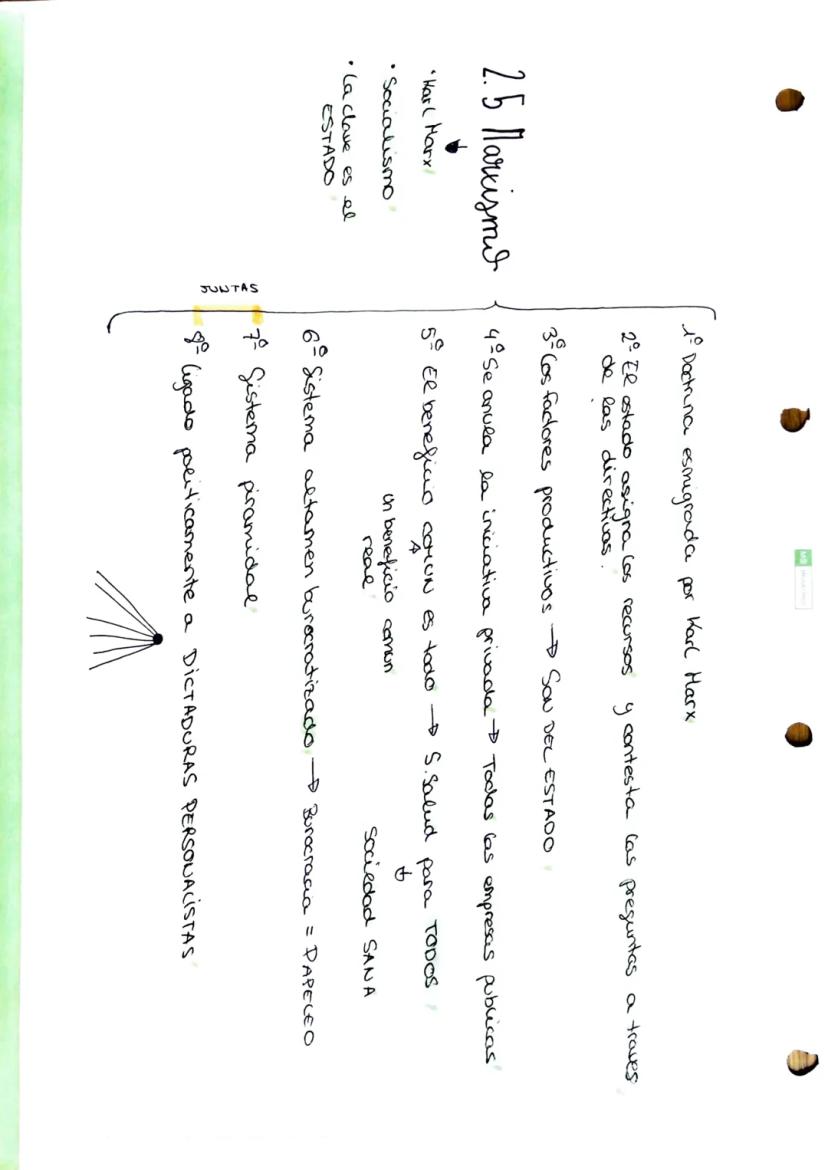 2.5 Marxismo
• Karl Marx
• Socialismo
• La clave es el
ESTADO
JUNTAS
1º Doctrina esmigrada por Karl Marx
2º El estado asigna los recursos y contesta las preguntas a traves
de las directivas.
3º Los factores productivos → SON DEL ESTADO
4º Se anula la iniciativa privada → Todas las empresas públicas
5º El beneficio COMUN es todo → S. Salud para TODOS
un beneficio comun
real
sociedad SANA
6º Sistema altamen burocratizado → Burocracia = PAPELEO
7º Sistema piramidal
8º Ligado políticamente a DICTADURAS PERSONALISTAS